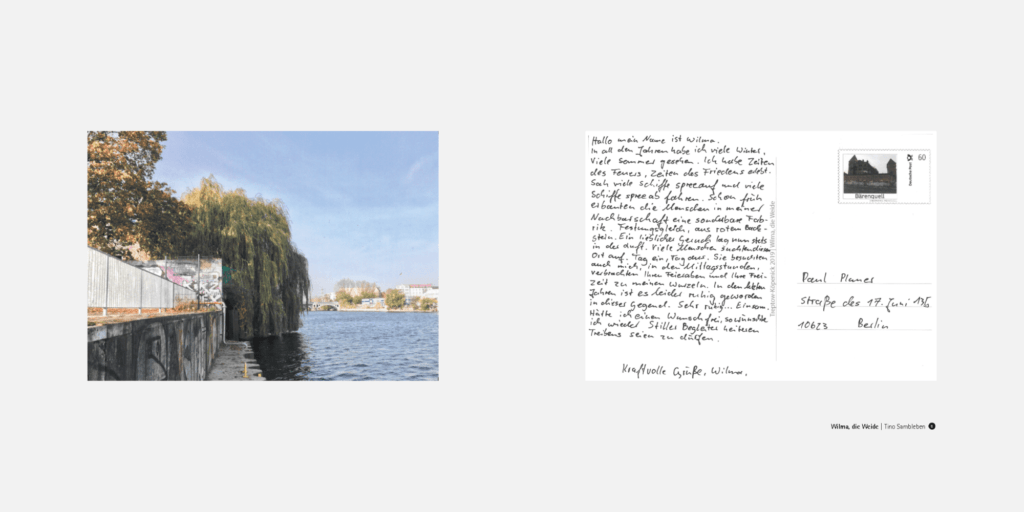 Hallo mein Name ist Wilma.
In all den Jahren habe ich viele Winter,
viele Sommer gesehen. Ich habe Zeiten
des Feuers, Zeiten des Friedens erlebt.
Sah viele Schiffe spreeauf und viele
Schiffe spreeab fahren. Schon früh
erbauten die Menschen in meiner
Nachbarschaft eine sonderbare Fab-
rik. Festungsgleich, aus rotem Back-
stein. Ein lieblicher Geruch lag nun stets
in der Luft. Viele Menschen suchten diesen
Ort auf. Tag ein, Tag aus. Sie besuchten
auch mich, in den Mittagsstunden,
verbrachten Ihren Feierabend und Ihre Frei-
zeit zu meinen Wurzeln. In den letzten
Jahren ist es leider ruhig geworden
in dieser Gegend. Sehr ruhig... Einsam.
Hätte ich einen Wunsch frei, so wünschte
ich wieder Stiller Begleiter heiteren
Treibens sein zu dürfen.
Kraftvolle Grüße, Wilma.
Treptow-Köpenick 2019 | Wilma, die Weide
Deutsche Post
60
Bärenquell
Paul
Straße des 17. Juni 136
10623 Berlin
Wilma, die Weide | Tino Sambleben